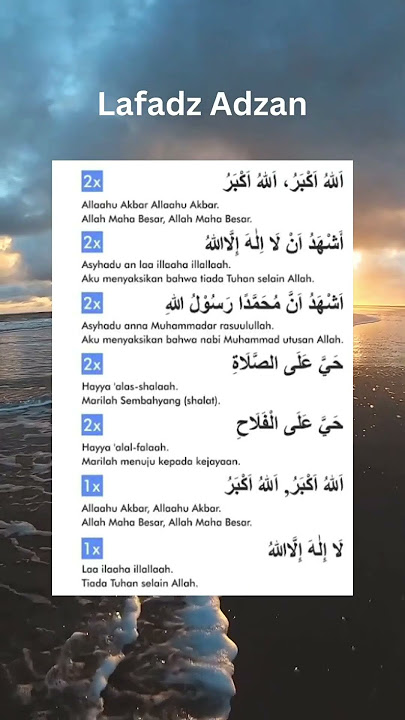 Lafadz Adzan
2x اَللهُ اَكْبَرُ، اَللهُ اَكْبَرُ
Allaahu Akbar Allaahu Akbar.
Allah Maha Besar, Allah Maha Besar.
2x أَشْهَدُ اَنْ لَا اِلٰهَ اِلَّااللهُ
Asyhadu an laa illaaha illallaah.
Aku menyaksikan bahwa tiada Tuhan selain Allah.
2x اَشْهَدُ اَنَّ مُحَمَّدًا رَسُوْلُ اللهِ
Asyhadu anna Muhammadar rasuulullah.
Aku menyaksikan bahwa nabi Muhammad utusan Allah.
2x حَيَّ عَلَى الصَّلَاةِ
Hayya 'alas-shalaah.
Marilah Sembahyang (shalat).
2x حَيَّ عَلَى الْفَلَاحِ
Hayya 'alal-falaah.
Marilah menuju kepada kejayaan.
1x اَللهُ اَكْبَرُ, اَللهُ اَكْبَرُ
Allaahu Akbar, Allaahu Akbar.
Allah Maha Besar, Allah Maha Besar.
1x لَا إِلٰهَ إِلَّااللهُ
Laa ilaaha illallaah.
Tiada Tuhan selain Allah.